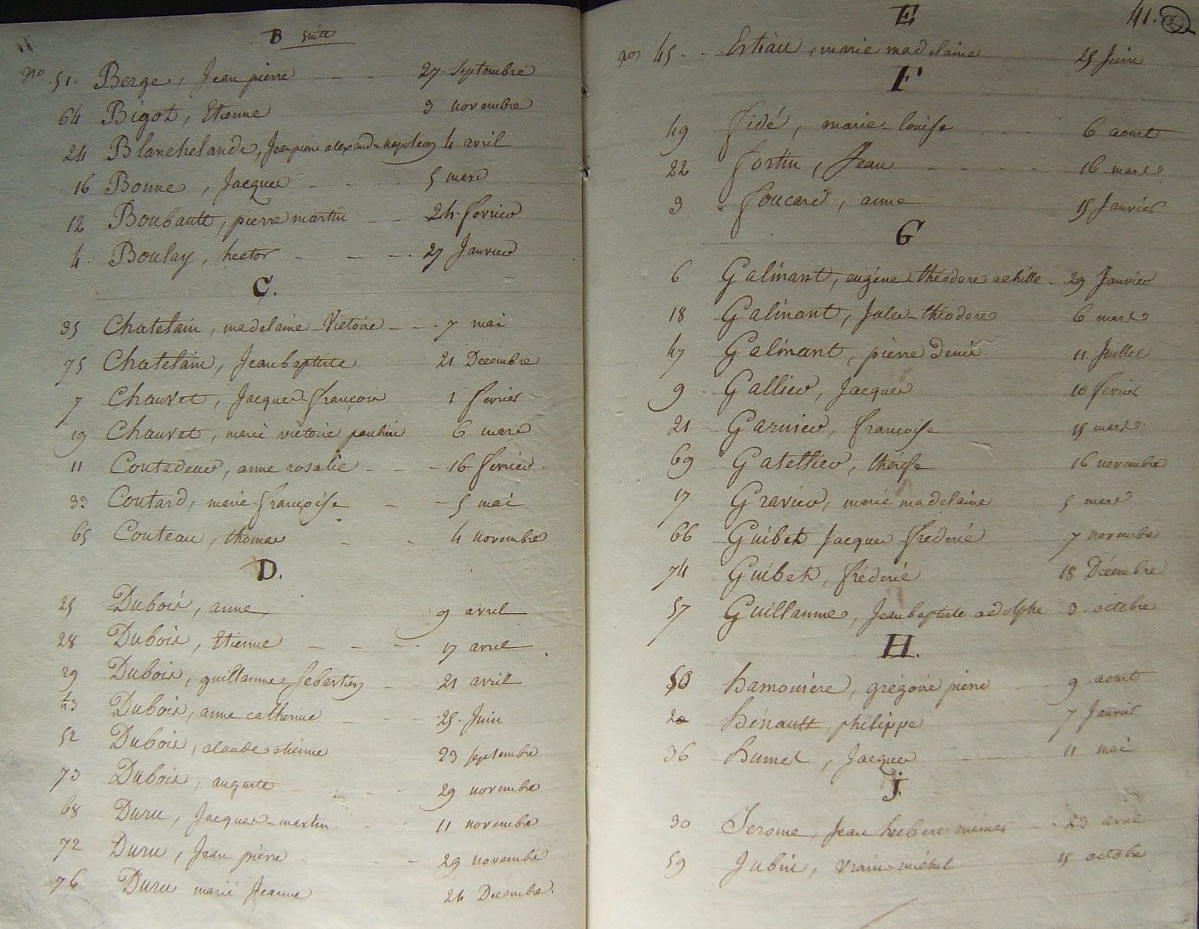 B Suitte
no 51. Berge, Jean pierre 27 Septembre
64 Bigot, Etienne 3 novembre
24 Blanchelande, Jean pierre alexandre napoleon 4 avril
16 Bonne, Jacques 5 mars
12 Boubault, pierre martin 24 fevrier
4. Boulay, hector 27 Janvier
C.
35 Chatelain, madelaine Victoire 7 mai
75 Chatelain, Jean baptiste 21 Decembre
7 Chauvet, Jacques François 1 fevrier
19 Chauvet, marie victoire pauline 6 mars
11 anne rosalie 16 fevrier
33 Coutard, marie françoise 5 mai
65 Couteau, thomas 4 novembre
D.
25 Dubois, anne 9 avril
28 Dubois, Etienne 17 avril
29 Dubois, guillaume Sebastien 21 avril
43 Dubois, anne catherine 25 Juin
52 Dubois, claude etienne 23 septembre
73 Dubois, auguste 29 novembre
68 Duru, Jacques martin 11 novembre
72 Duru, Jean pierre 29 novembre
76 Duru marie Jeanne 24 Decembre.
41.
E
no 45 Estiau, marie madelaine 25 Juin
F
49 fidé, marie louise 6 aout
22 fortin, Jean 16 mars
3 foucard, anne 15 Janvier
G
6 Galinant, eugéne théodore achille 29 Janvier
18 Galinant, Jules théodore 6 mars
47 Galinant, pierre Denis 11 Juillet
9 Gallier, Jacques 10 fevrier
21 Garnier, françoise 15 mars
69 Gatellier, thérése 16 novembre
17 Gravier, marie madelaine 5 mars
66 Guibet Jacques fréderic 7 novembre
74 Guibet, fréderic 18 Décembre
57 Guillaume, Jean baptiste adolphe 3 octobre
H.
50 hamoniere, grégoire pierre 9 aout
2 hénault, philippe 7 Janvier
36 humel, Jacques 11 mai
J.
30 Jerome, Jean 23 avril
59 Jubin, vrain michel 15 octobre